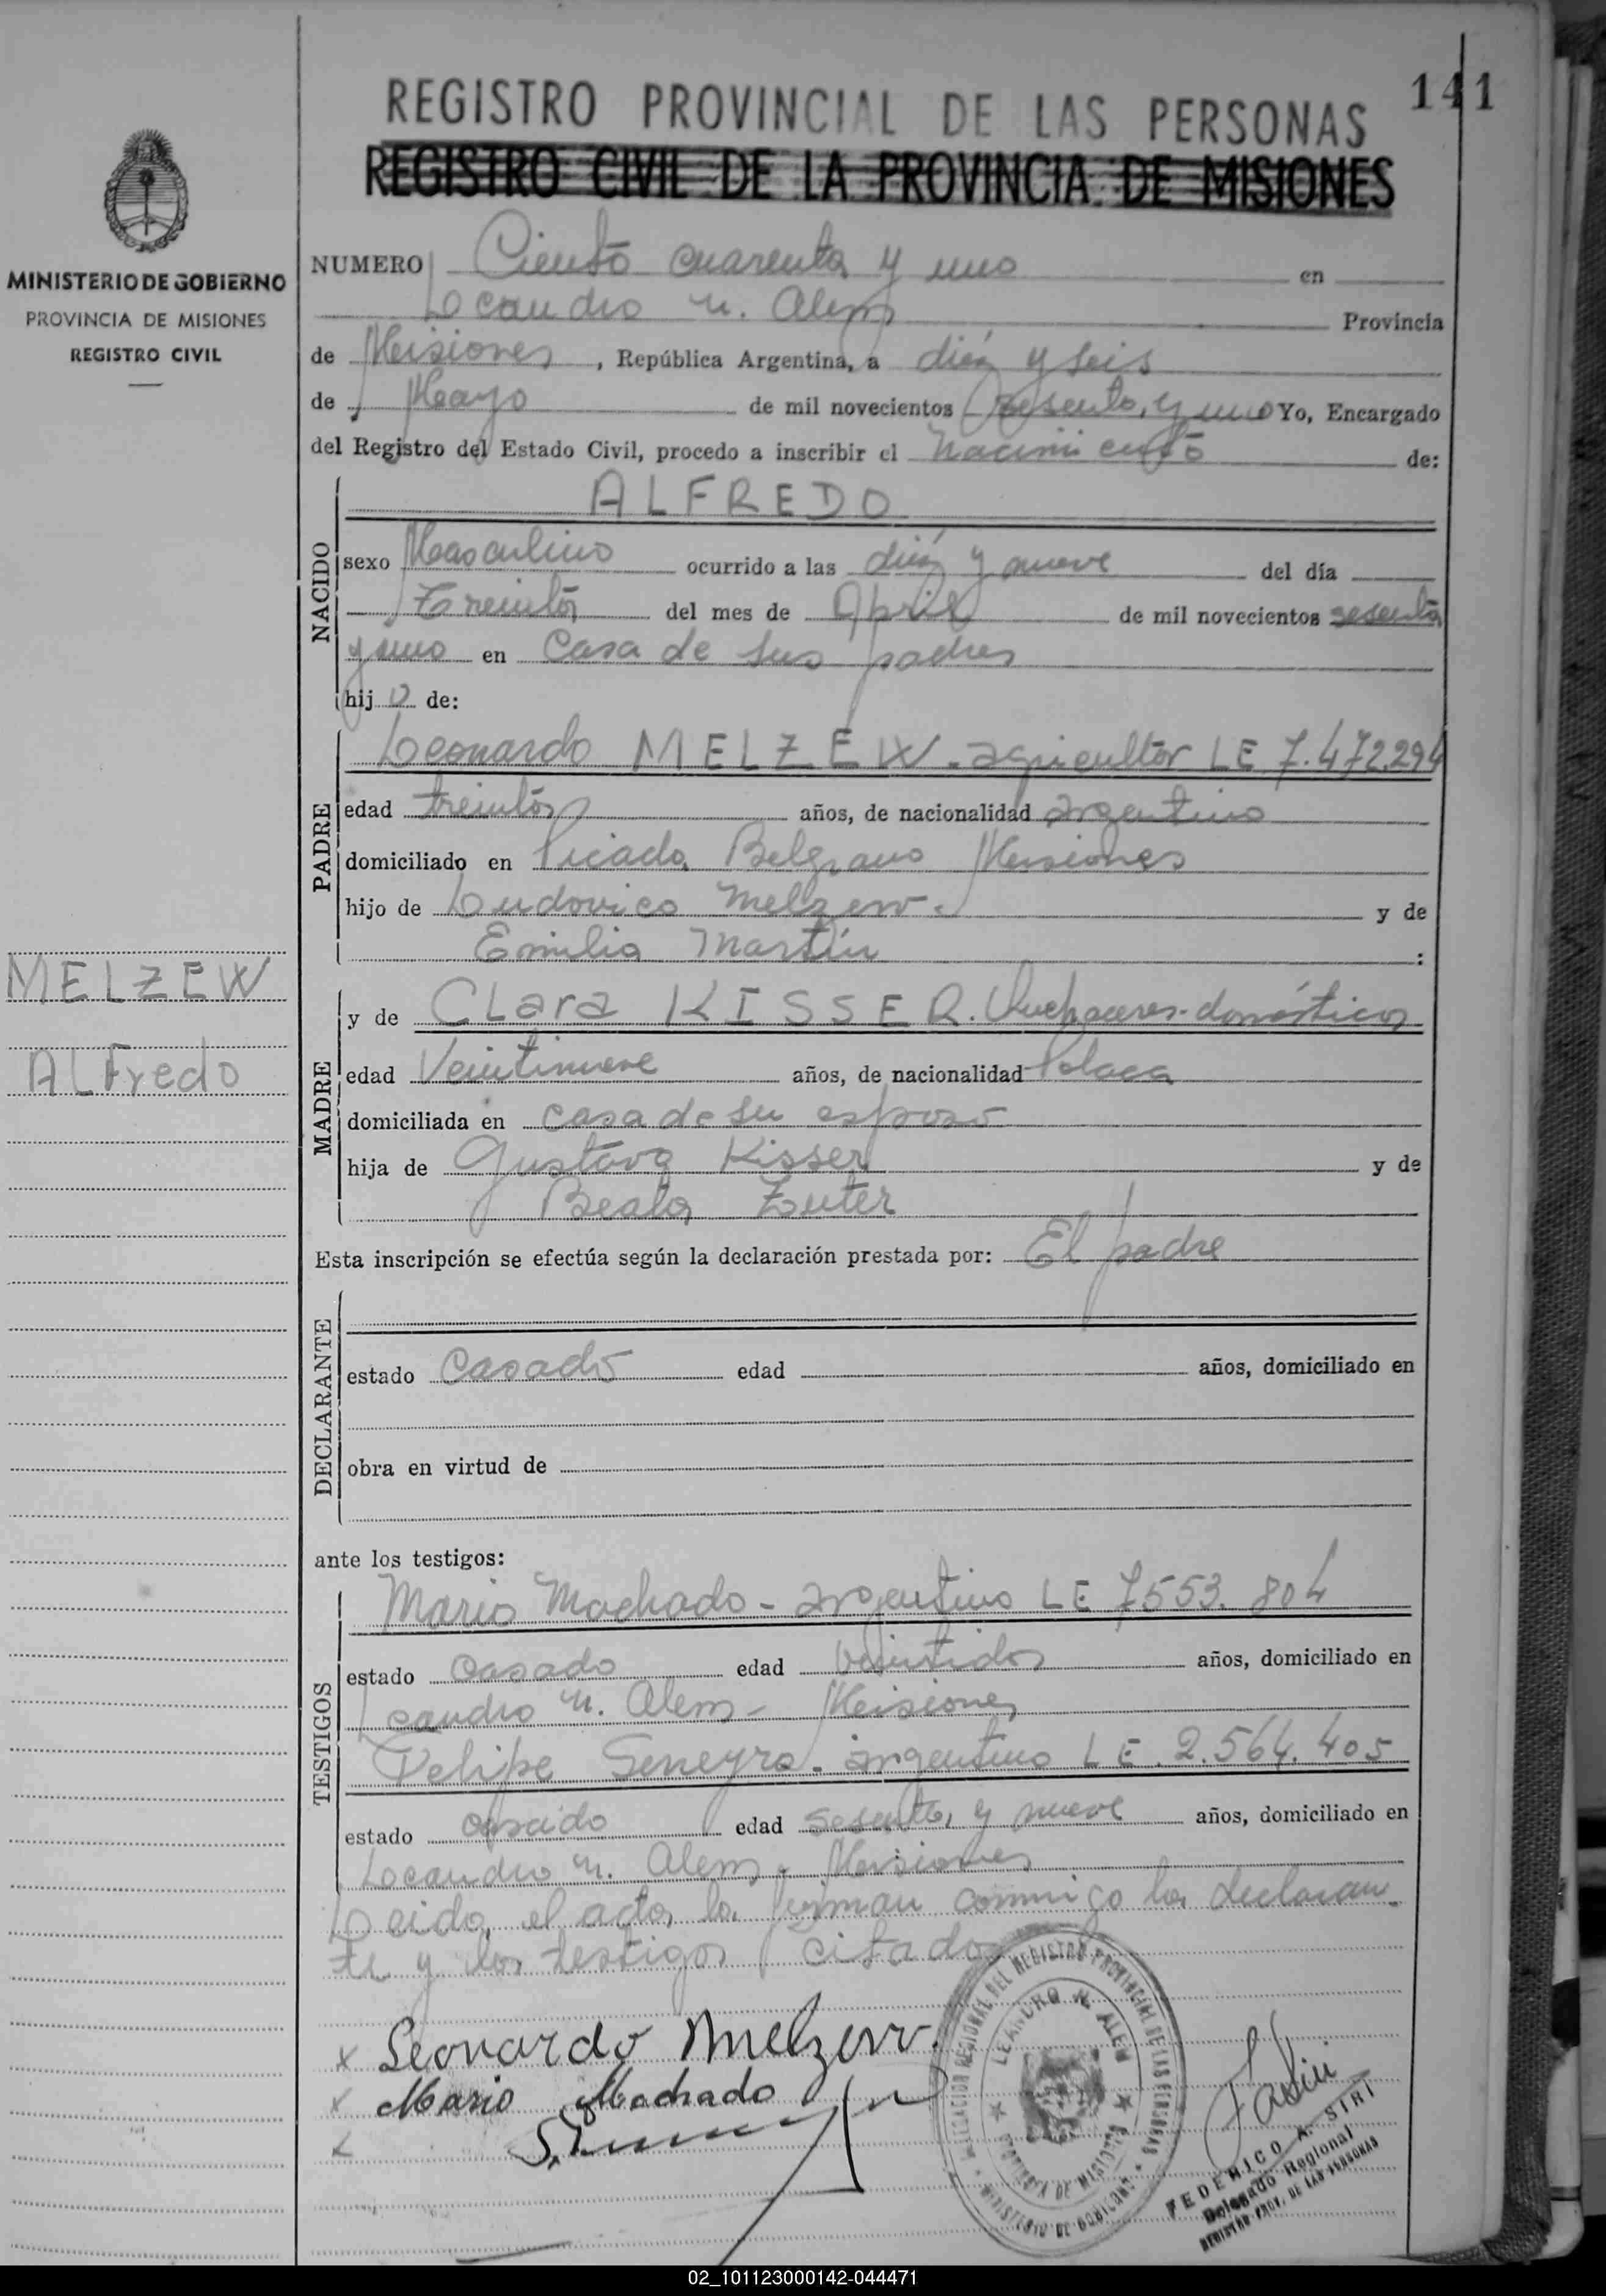 141
REGISTRO PROVINCIAL DE LAS PERSONAS
REGISTRO CIVIL DE LA PROVINCIA DE MISIONES
MINISTERIO DE GOBIERNO
PROVINCIA DE MISIONES
REGISTRO CIVIL
NUMERO Ciento cuarenta y uno en
Leandro N. Alem Provincia
de Misiones, República Argentina, a diez y seis
de Mayo de mil novecientos sesenta y uno Yo, Encargado
del Registro del Estado Civil, procedo a inscribir el Nacimiento de:
NACIDO
ALFREDO
sexo Masculino ocurrido a las diez y nueve del día
Treinta del mes de April de mil novecientos sesenta
y uno en Casa de sus padres
hijo de:
PADRE
Leonardo MELZEW - agricultor LE 7.472.294
edad treinta años, de nacionalidad argentino
domiciliado en Picada Belgrano Misiones
hijo de Ludovico Melzew - y de
Emilia Martin :
MELZEW
ALFredo
MADRE
y de CLara KISSER. Quehaceres domésticos
edad Veintinueve años, de nacionalidad Polaca
domiciliada en casa de su esposo
hija de Gustavo Kisser y de
Beata Zuter
Esta inscripción se efectúa según la declaración prestada por: El padre
DECLARANTE
estado Casado edad años, domiciliado en
obra en virtud de
ante los testigos:
TESTIGOS
Mario Machado - argentino LE 7553.804
estado Casado edad veintidos años, domiciliado en
Leandro N. Alem - Misiones
Felipe Seneyro - argentino LE. 2.564.405
estado casado edad sesenta y nueve años, domiciliado en
Leandro N. Alem - Misiones
Leida el acta la firman conmigo los declaran
te y los testigos citados
x Leonardo Melzew.
x Mario Machado
x
DELEGACION REGIONAL DEL REGISTRO PROVINCIAL DE LAS PERSONAS
LEANDRO N. ALEM
PROVINCIA DE MISIONES
MINISTERIO DE GOBIERNO
FEDERICO A. SIRI
Delegado Regional
REGISTRO PROV. DE LAS PERSONAS
02_101123000142-044471